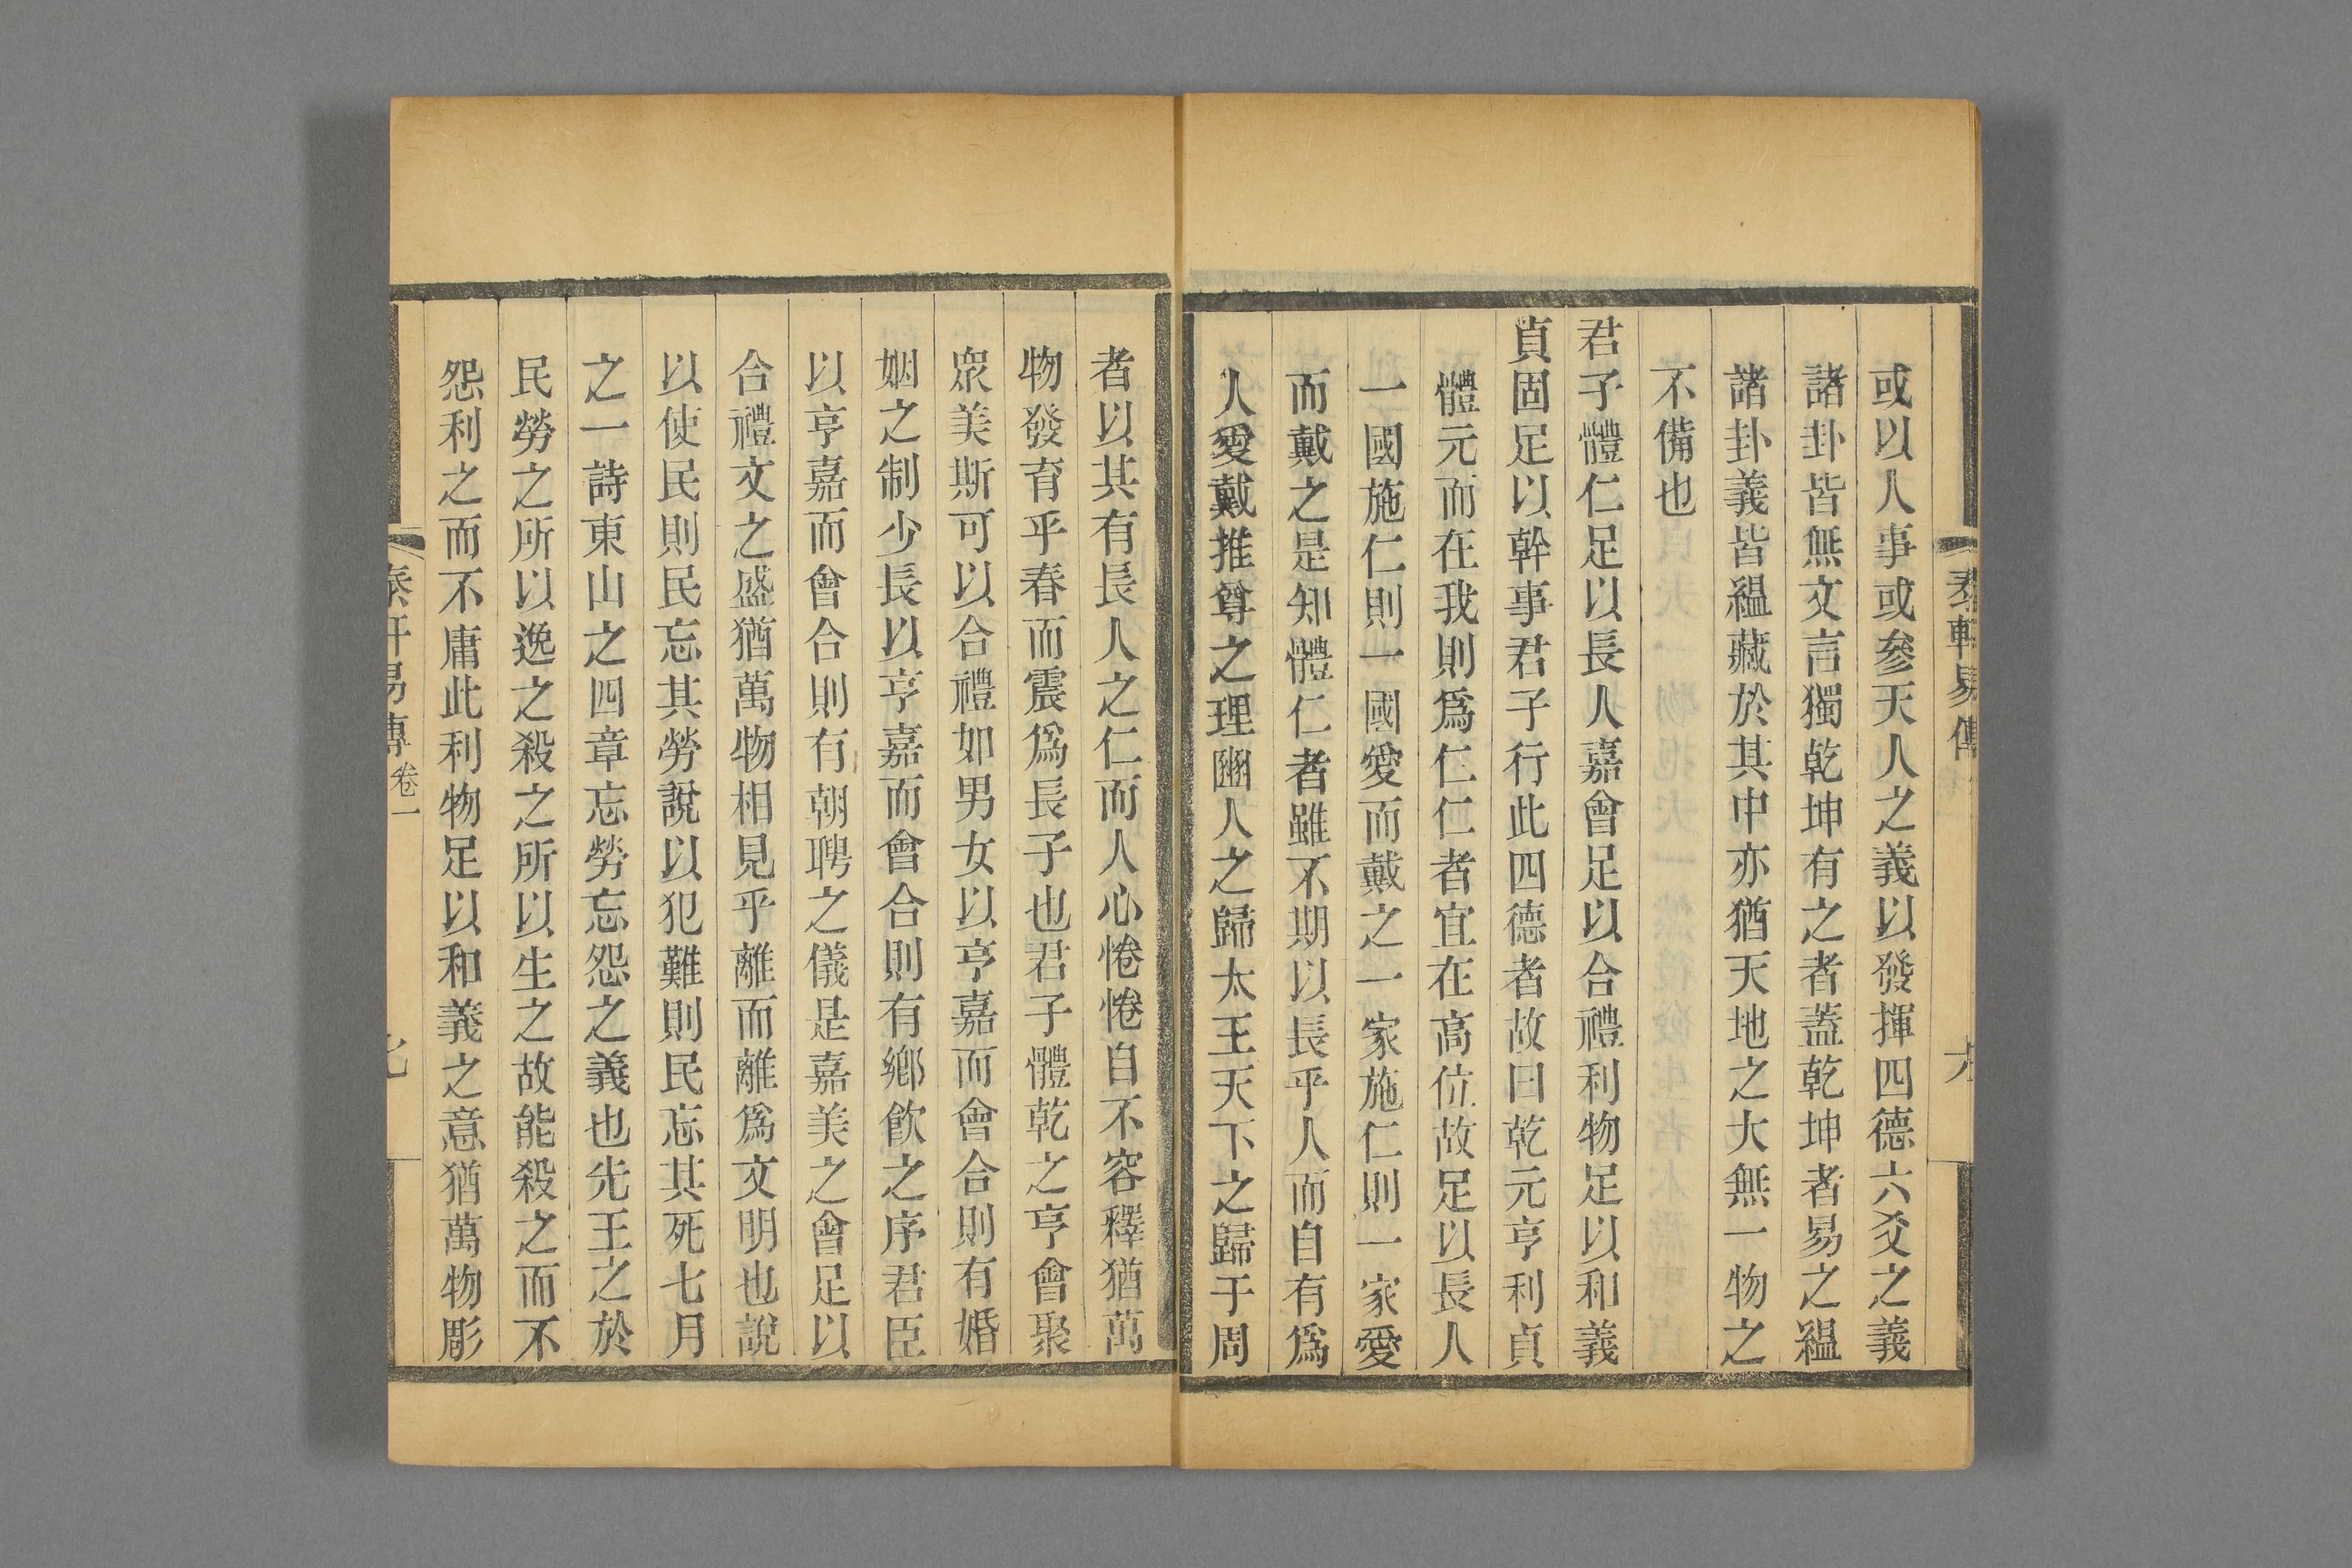 或以人事或參天人之義以發揮四德六爻之義
諸卦皆無文言獨乾坤有之者蓋乾坤者易之緼
諸卦義皆緼藏於其中亦猶天地之大無一物之
不備也
君子體仁足以長人嘉會足以合禮利物足以和義
貞固足以幹事君子行此四德者故曰乾元亨利貞
體元而在我則爲仁仁者宜在高位故足以長人
一國施仁則一國愛而戴之一家施仁則一家愛
而戴之是知體仁者雖不期以長乎人而自有爲
人愛戴推尊之理豳人之歸太王天下之歸于周
者以其有長人之仁而人心惓惓自不容釋猶萬
物發育乎春而震爲長子也君子體乾之亨會聚
衆美斯可以合禮如男女以亨嘉而會合則有婚
姻之制少長以亨嘉而會合則有鄉飮之序君臣
以亨嘉而會合則有朝聘之儀是嘉美之會足以
合禮文之盛猶萬物相見乎離而離爲文明也說
以使民則民忘其勞說以犯難則民忘其死七月
之一詩東山之四章忘勞忘怨之義也先王之於
民勞之所以逸之殺之所以生之故能殺之而不
怨利之而不庸此利物足以和義之意猶萬物彫
易傳 卷一